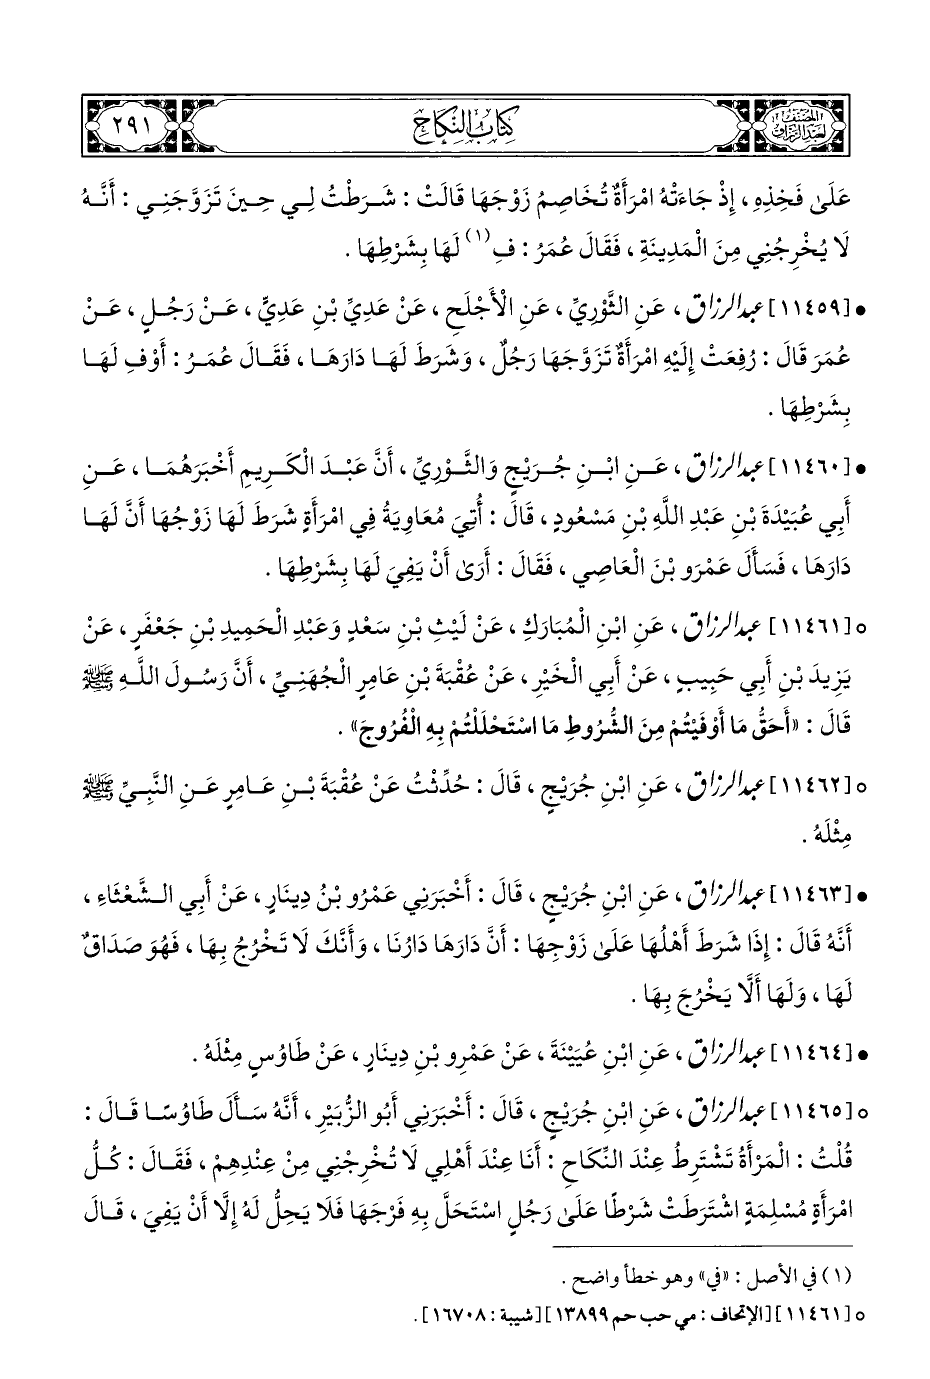 المصنف لعبد الرزاق
كتاب النكاح
٢٩١
عَلَىٰ فَخِذِهِ ، إِذْ جَاءَتْهُ امْرَأَةٌ تُخَاصِمُ زَوْجَهَا قَالَتْ : شَرَطْتُ لِي حِينَ تَزَوَّجَنِي : أَنَّهُ
لَا يُخْرِجُنِي مِنَ الْمَدِينَةِ ، فَقَالَ عُمَرُ : فِ(١) لَهَا بِشَرْطِهَا .
• [١١٤٥٩] عبد الرزاق ، عَنِ الثَّوْرِيِّ ، عَنِ الْأَجْلَحِ ، عَنْ عَدِيِّ بْنِ عَدِيٍّ ، عَنْ رَجُلٍ ، عَنْ
عُمَرَ قَالَ : رُفِعَتْ إِلَيْهِ امْرَأَةٌ تَزَوَّجَهَا رَجُلٌ ، وَشَرَطَ لَهَا دَارَهَا ، فَقَالَ عُمَرُ : أَوْفِ لَهَا
بِشَرْطِهَا .
• [١١٤٦٠] عبد الرزاق ، عَنِ ابْنِ جُرَيْجٍ وَالثَّوْرِيِّ ، أَنَّ عَبْدَ الْكَرِيمِ أَخْبَرَهُمَا ، عَنِ
أَبِي عُبَيْدَةَ بْنِ عَبْدِ اللَّهِ بْنِ مَسْعُودٍ ، قَالَ : أُتِيَ مُعَاوِيَةُ فِي امْرَأَةٍ شَرَطَ لَهَا زَوْجُهَا أَنَّ لَهَا
دَارَهَا ، فَسَأَلَ عَمْرَو بْنَ الْعَاصِي ، فَقَالَ : أَرَىٰ أَنْ يَفِيَ لَهَا بِشَرْطِهَا .
○ [١١٤٦١] عبد الرزاق ، عَنِ ابْنِ الْمُبَارَكِ ، عَنْ لَيْثِ بْنِ سَعْدٍ وَعَبْدِ الْحَمِيدِ بْنِ جَعْفَرٍ ، عَنْ
يَزِيدَ بْنِ أَبِي حَبِيبٍ ، عَنْ أَبِي الْخَيْرِ ، عَنْ عُقْبَةَ بْنِ عَامِرٍ الْجُهَنِيِّ ، أَنَّ رَسُولَ اللَّهِ ﷺ
قَالَ : «أَحَقُّ مَا أَوْفَيْتُمْ مِنَ الشُّرُوطِ مَا اسْتَحْلَلْتُمْ بِهِ الْفُرُوجَ» .
○ [١١٤٦٢] عبد الرزاق ، عَنِ ابْنِ جُرَيْجٍ ، قَالَ : حُدِّثْتُ عَنْ عُقْبَةَ بْنِ عَامِرٍ عَنِ النَّبِيِّ ﷺ
مِثْلَهُ .
• [١١٤٦٣] عبد الرزاق ، عَنِ ابْنِ جُرَيْجٍ ، قَالَ : أَخْبَرَنِي عَمْرُو بْنُ دِينَارٍ ، عَنْ أَبِي الشَّعْثَاءِ ،
أَنَّهُ قَالَ : إِذَا شَرَطَ أَهْلُهَا عَلَىٰ زَوْجِهَا : أَنَّ دَارَهَا دَارُنَا ، وَأَنَّكَ لَا تَخْرُجُ بِهَا ، فَهُوَ صَدَاقٌ
لَهَا ، وَلَهَا أَلَّا يَخْرُجَ بِهَا .
• [١١٤٦٤] عبد الرزاق ، عَنِ ابْنِ عُيَيْنَةَ ، عَنْ عَمْرِو بْنِ دِينَارٍ ، عَنْ طَاوُسٍ مِثْلَهُ .
○ [١١٤٦٥] عبد الرزاق ، عَنِ ابْنِ جُرَيْجٍ ، قَالَ : أَخْبَرَنِي أَبُو الزُّبَيْرِ ، أَنَّهُ سَأَلَ طَاوُسًا قَالَ :
قُلْتُ : الْمَرْأَةُ تَشْتَرِطُ عِنْدَ النِّكَاحِ : أَنَا عِنْدَ أَهْلِي لَا تُخْرِجْنِي مِنْ عِنْدِهِمْ ، فَقَالَ : كُلُّ
امْرَأَةٍ مُسْلِمَةٍ اشْتَرَطَتْ شَرْطًا عَلَىٰ رَجُلٍ اسْتَحَلَّ بِهِ فَرْجَهَا فَلَا يَحِلُّ لَهُ إِلَّا أَنْ يَفِيَ ، قَالَ
(١) في الأصل : «في» وهو خطأ واضح .
○ [١١٤٦١] [الإتحاف : مي حب حم ١٣٨٩٩] [شيبة : ١٦٧٠٨] .